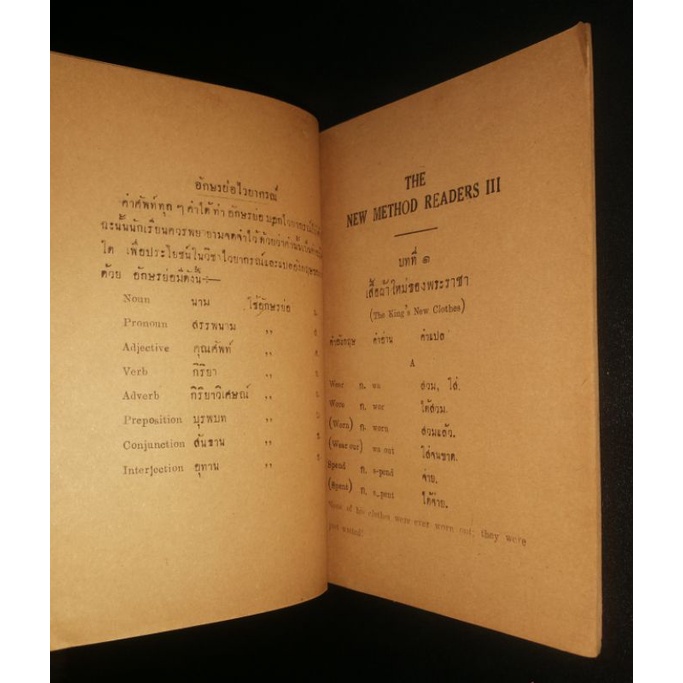 อักษรย่อไวยากรณ์
คำศัพท์ทุก ๆ คำได้ทำ อักษรย่อ
ฉะนั้นนักเรียนควรพยายามจดจำไว้ด้วยว่าคำนั้น
ใด เพื่อประโยชน์ในวิชาไวยากรณ์และแปลอังกฤษ
ด้วย อักษรย่อมีดังนี้:—
Noun นาม ใช้อักษรย่อ น.
Pronoun สรรพนาม ,,
Adjective คุณศัพท์ ,,
Verb กิริยา ,,
Adverb กิริยาวิเศษณ์ ,,
Preposition บุรพบท ,,
Conjunction สันธาน ,,
Interjection อุทาน ,,
THE
NEW METHOD READERS III
บทที่ ๑
เสื้อผ้าใหม่ของพระราชา
(The King's New Clothes)
คำอังกฤษ คำอ่าน คำแปล
A
Wear ก. แว สวม, ใส่.
Wore ก. wor ได้สวม.
(Worn) ก. worn สวมแล้ว.
(Wear out) ใส่จนขาด.
Spend ก. s-pend จ่าย.
(Spent) ก. s-pent ได้จ่าย.
"None of his clothes were ever worn out; they were
just wasted"